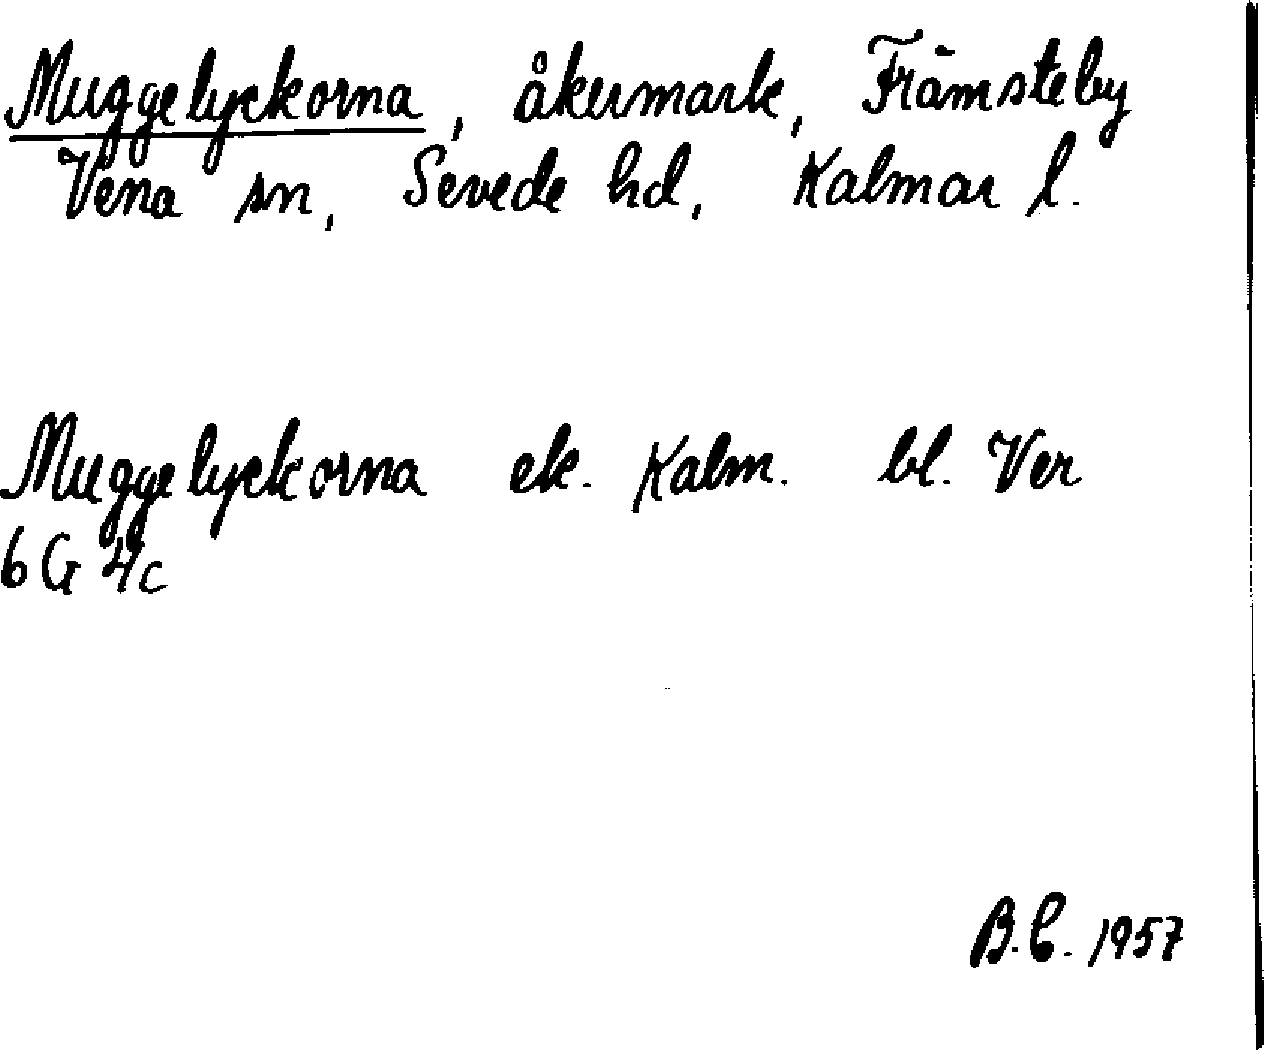 Muggelyckorna, åkermark, Främsteby
Vena sn, Sevede hd, Kalmar l.
Muggelyckorna ek. Kalm. bl. Ver
6 G 4c
B.C. 1957